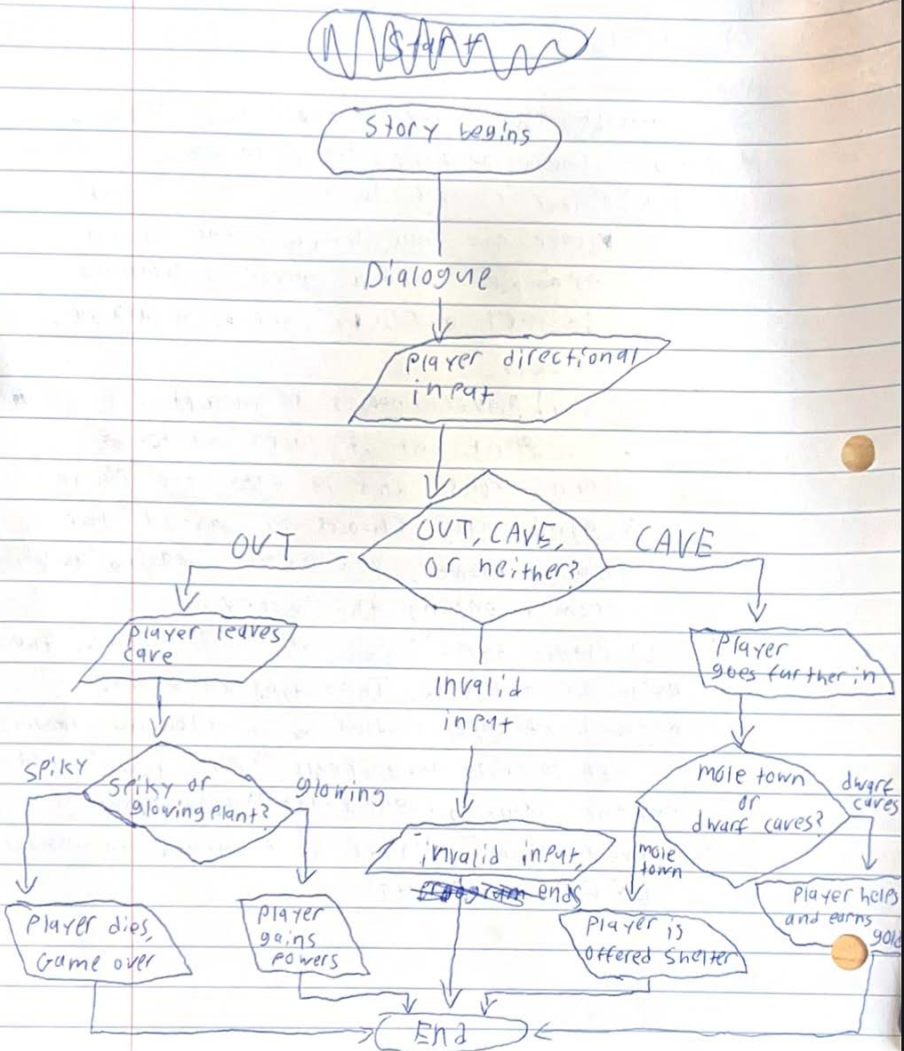 Start
Story begins
Dialogue
Player directional
input
OUT, CAVE,
or neither?
OUT
CAVE
player leaves
cave
Invalid
input
Player
goes further in
SPIKY
Spiky or
glowing plant?
glowing
mole town
or
dwarf caves?
dwarf
caves
mole
town
invalid input,
program ends
Player dies,
Game over
Player
gains
powers
Player is
offered shelter
Player helps
and earns
gold
End